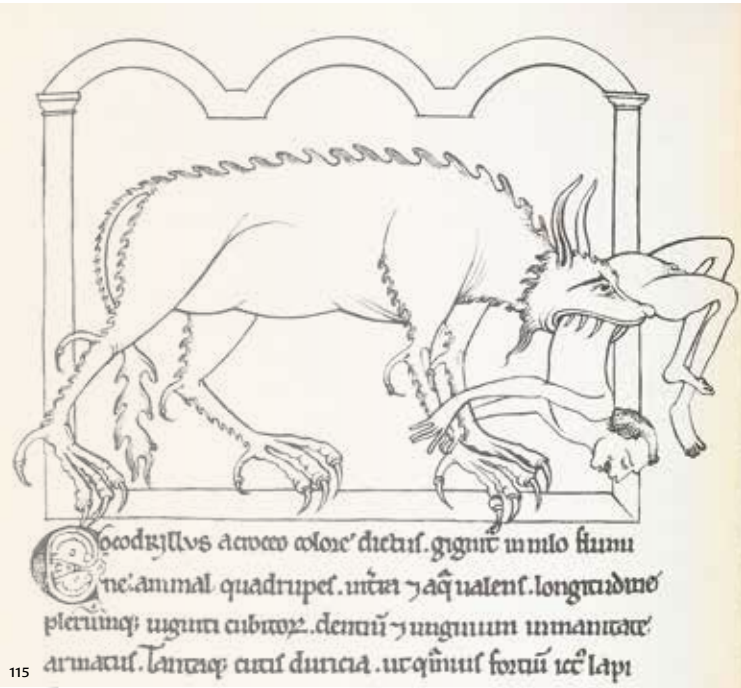 Cocodrillus a croceo colore dictus. gignit̄ in nilo flumi
ne. animal quadrupes. in t̄ra ⁊ aq̄ ualens. longitudine
plerumq; uiginti cubitoꝝ. dentiū ⁊ unguium inmanitate
armatus. Tantaq; cutis duricia. ut q̄muis fortiū ict᷒ lapi
115